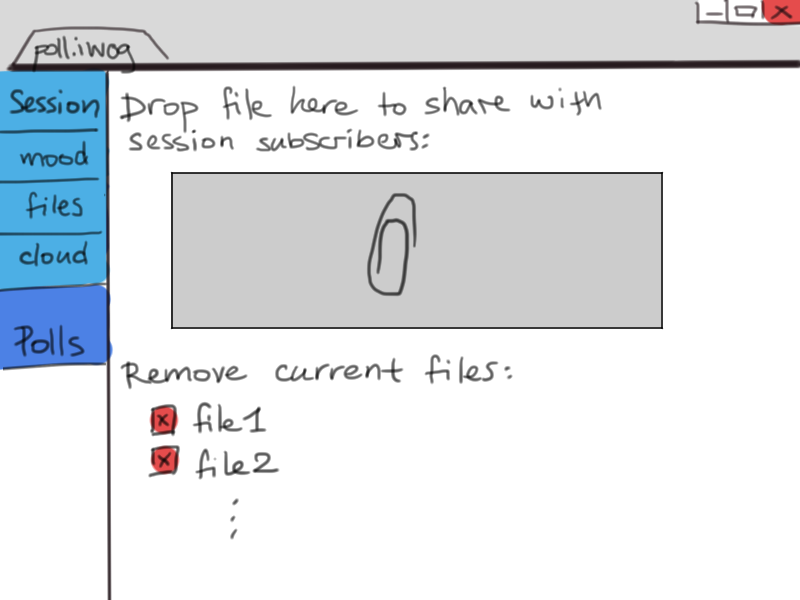 poll.iwog
Session
mood
files
cloud
Polls
Drop file here to share with
session subscribers:
Remove current files:
x file1
x file2